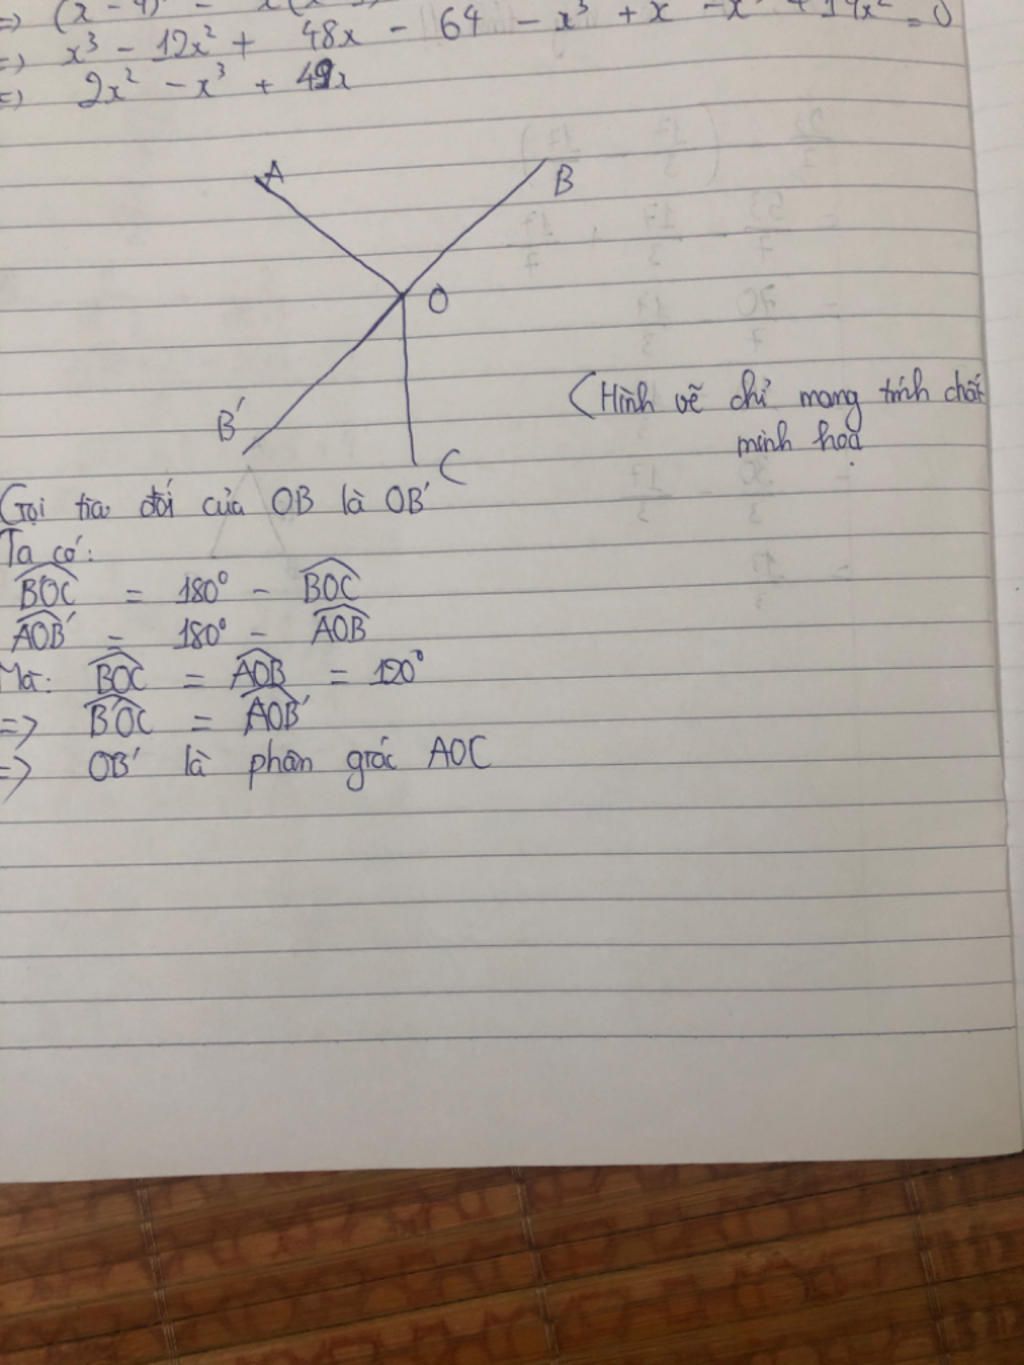 => x³ - 12x² + 48x - 64 - x³ + x - x² + 14x² = 0
=> 2x² - x³ + 49x
A
B
O
B'
(Hình vẽ chỉ mang tính chất
minh hoạ
C
Gọi tia đối của OB là OB'
Ta có:
BOC = 180° - BOC
AOB' = 180° - AOB
Mà: BOC = AOB = 120°
=> B'OC = AOB'
=> OB' là phân giác AOC